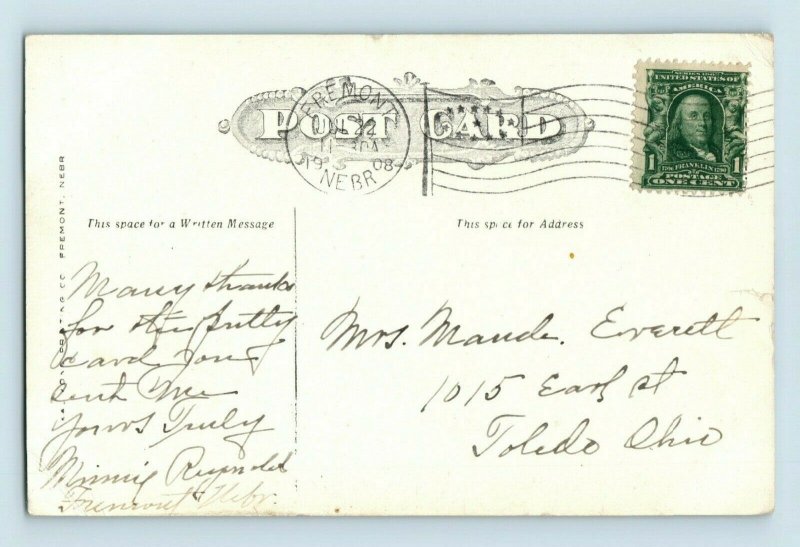 POST CARD
FREMONT
JUL 22
1908
NEBR
SERIES 1902
UNITED STATES OF
AMERICA
1 1
1706 FRANKLIN 1790
POSTAGE
ONE CENT
FREMONT, NEBR
This space for a Written Message
This space for Address
Many thanks
for the pretty
card you
sent me
Yours Truly
Minnie Reynolds
Fremont Nebr.
Mrs. Maude. Everett
1015 Earl st
Toledo Ohio